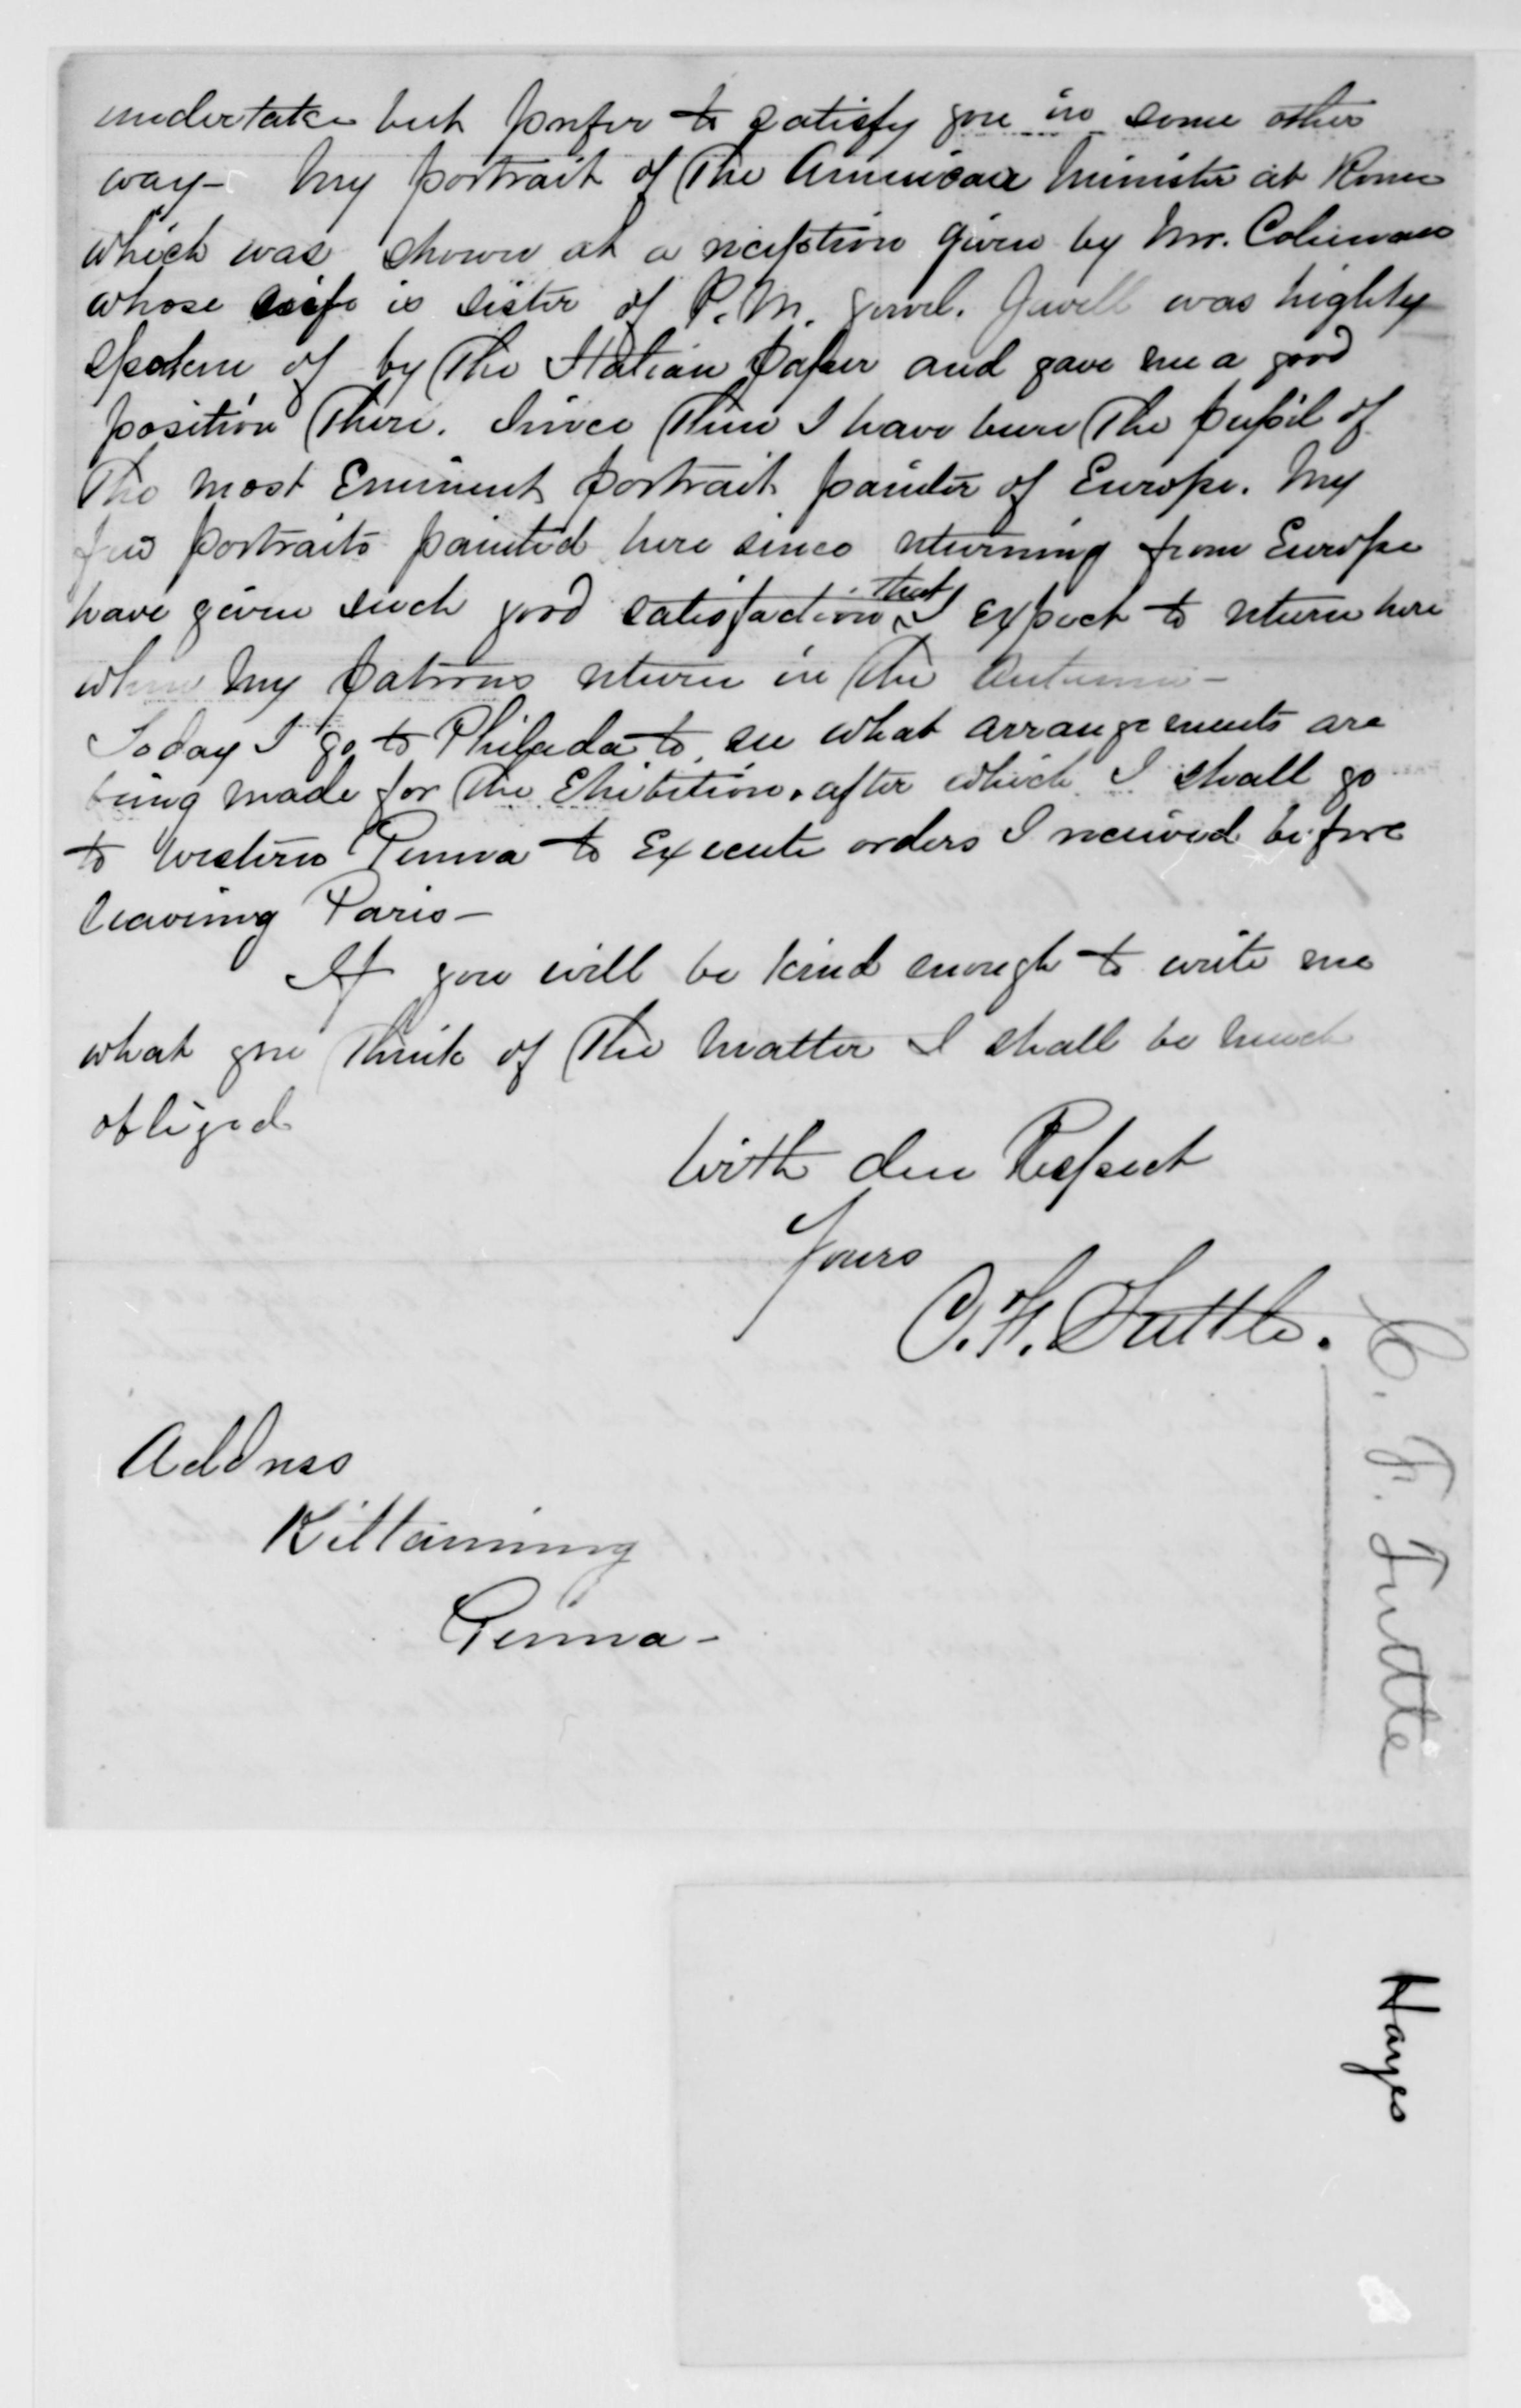 undertake but prefer to satisfy you in some other
way - My portrait of The American Minister at Rome
which was shown at a reception given by Mr. Coleman
whose wife is sister of P. M. Genrl. Jewell was highly
spoken of by The Italian paper and gave me a good
position There. Since Then I have been The pupil of
The most Eminent portrait painter of Europe. My
few portraits painted here since returning from Europe
have given such good satisfaction that I expect to return here
when My patrons return in The Autumn -
Today I go to Philada to see what arrangements are
being made for The Ehibition. after which I shall go
to Western Penna to Execute orders I received before
leaving Paris -
If you will be kind enough to write me
what you Think of The Matter I shall be much
obliged
With due Respect
Yours
C. F. Tuttle.
Address
Kittanning
Penna -
C. F. Tuttle
Hayes